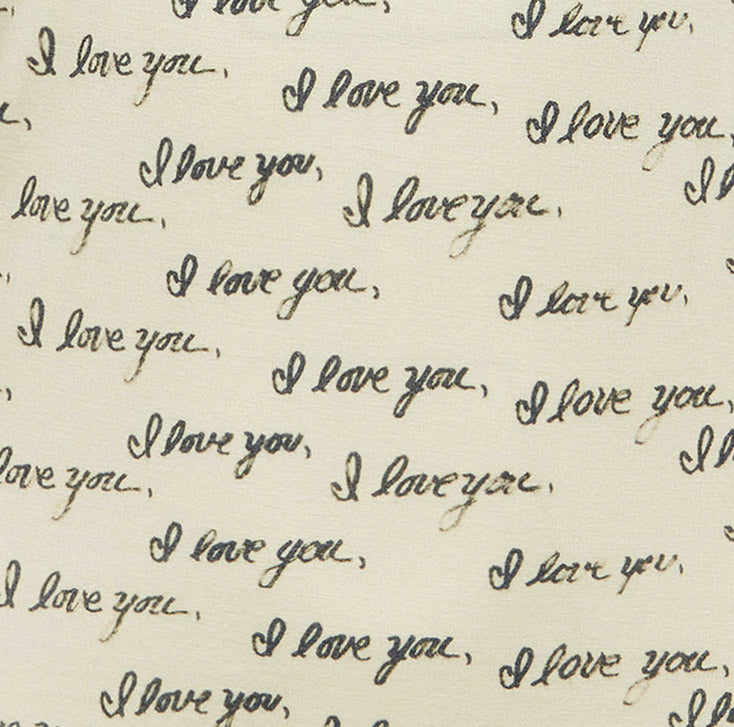 I love you,
I love you,
I love you,
I love you,
I love you,
I love you,
I love you,
love you,
I love you,
I love you,
I love you,
I love you,
I love you,
I love you,
I love you,
love you,
I love you,
I love you,
I love you,
I love you,
I love you,
I love you,
I love you,